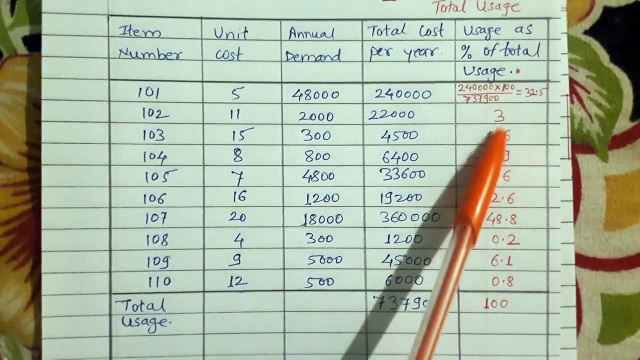 Total Usage
Item Number Unit Cost Annual Demand Total Cost per year. Usage as % of total Usage.
101 5 48000 240000 240000×100/737900 = 32.5
102 11 2000 22000 3
103 15 300 4500
104 8 800 6400
105 7 4800 33600
106 16 1200 19200 2.6
107 20 18000 360000 48.8
108 4 300 1200 0.2
109 9 5000 45000 6.1
110 12 500 6000 0.8
Total Usage. 73790 100